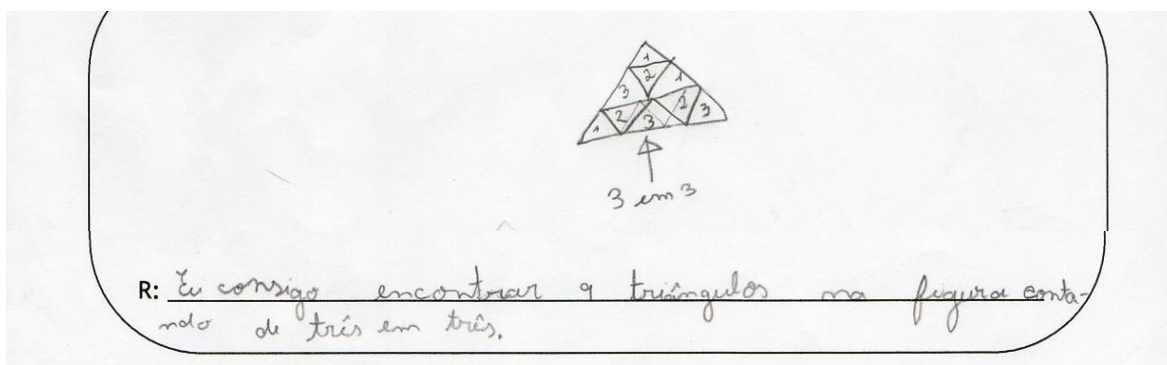 1
2 1
3
2 2 3
1 3
3 em 3
R: Eu consigo encontrar 9 triângulos na figura conta-
ndo de três em três.